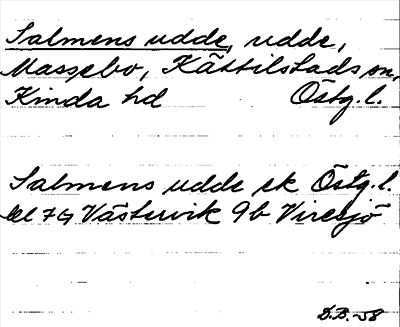 Salmens udde, udde,
Massebo, Kättilstads sn,
Kinda hd Östg.l.
Salmens udde ek Östg.l.
bl 7G Västervik 9b Viresjö
D.B.-58